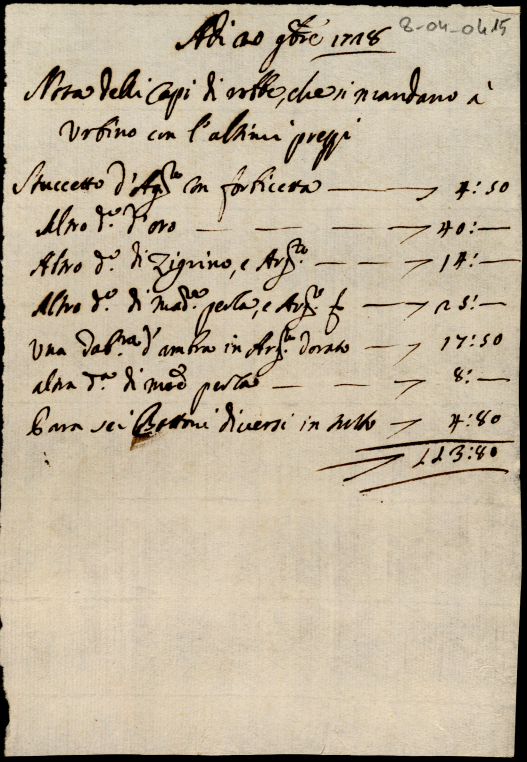 8-04-0415
Adi 20 9bre 1718
Nota delli Capi di robbe, che si mandano à
Urbino con l'ultimi prezzi
Stuccetto d'Arg.to con forbicetta — 4:50
Altro d.o d'oro — — — — 40:—
Altro d.o di Zigrino, e Arg.to — — 14:—
Altro d.o di mad.e perla, e Arg.to — — 25:—
Una Tab.ra d'ambra in Arg.to dorato — 17:50
altra d.a di mad.e perla — — — 8:—
Para sei Bottoni diversi in tutto — 4:80
113:80